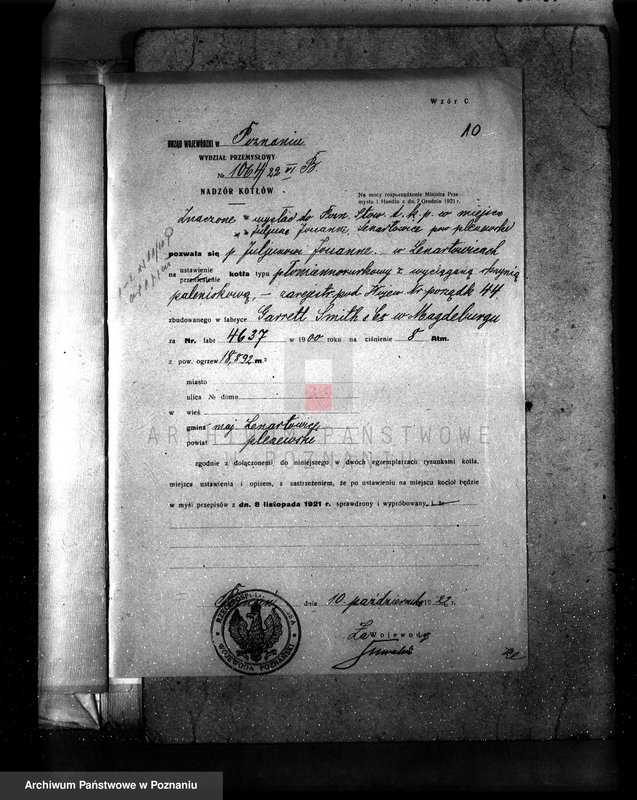 Wzór C.
10
URZĄD WOJEWÓDZKI w Poznaniu
WYDZIAŁ PRZEMYSŁOWY
№ 1064/22 VI
NADZÓR KOTŁÓW
Na mocy rozporządzenia Ministra Prze-
mysłu i Handlu z dn. 7 Grudnia 1921 r.
Znaczone wysłać do Stow. d. k. p. w miejscu
Lenartowice pow. pleszewski
pozwala się p. Juljanowi Jouanne w Lenartowicach
na ustawienie
przeniesienie kotła typu płomiennorurkowy z wyciąganą skrzynią
paleniskową, – zarejestr. pod Nr porządk 44
zbudowanego w fabryce Garrett Smith & Co w Magdeburgu
za Nr. fabr 4637 w 1900 roku na ciśnienie 8 Atm.
z pow. ogrzew 18,892 m²
miasto
ulica № domu
w wieś
gmina maj. Lenartowice
powiat pleszewski
zgodnie z dołączonemi do niniejszego w dwóch egzemplarzach rysunkami kotła,
miejsca ustawienia i opisem, z zastrzeżeniem, że po ustawieniu na miejscu kocioł będzie
w myśl przepisów z dn. 8 listopada 1921 r. sprawdzony i wypróbowany,
dnia 10 października 1922 r.
Za Wojewodę
RZECZPOSPOLITA POLSKA
WOJEWODA POZNAŃSKI
ARCHIWUM PAŃSTWOWE
W POZNANIU
Archiwum Państwowe w Poznaniu